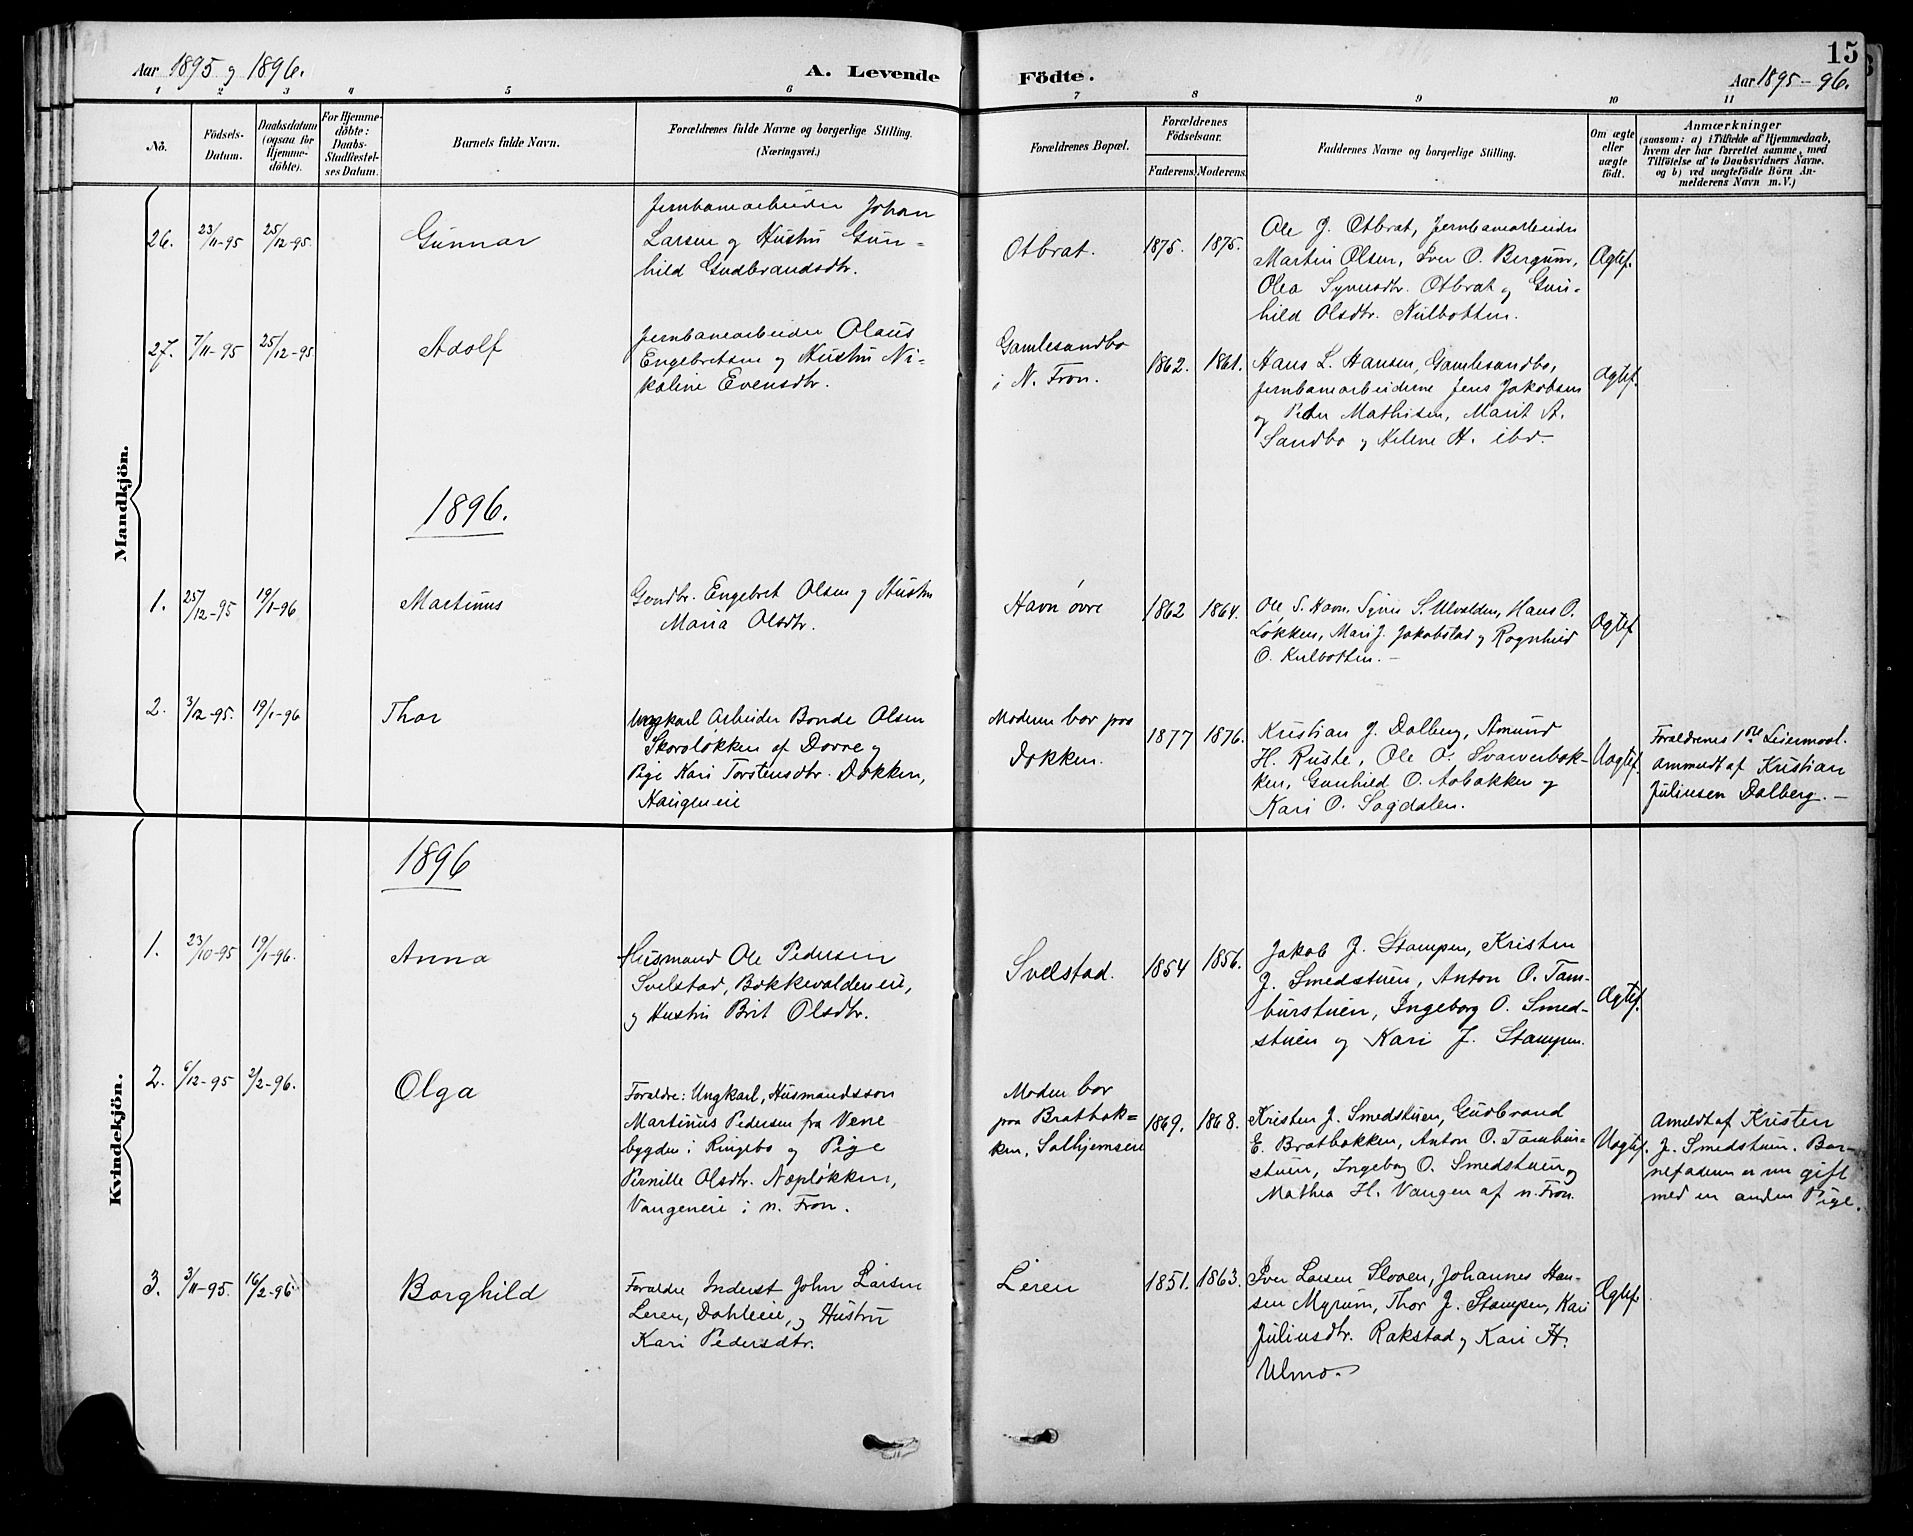 Aar 1895 og 1896.
A. Levende
Födte.
15
Aar 1895-96.
1 2 3 4 5 6 7 8 9 10 11
No.
Födsels-
Datum.
Daabsdatum
(ogsaa for
Hjemme-
döbte).
For Hjemme-
döbte:
Daabs-
Stadfæstel-
ses Datum.
Barnets fulde Navn.
Forældrenes fulde Navne og borgerlige Stilling.
(Næringsvei.)
Forældrenes Bopæl.
Forældrenes
Födselsaar.
Faderens. Moderens.
Faddernes Navne og borgerlige Stilling.
Om ægte
eller
uægte
födt.
Anmærkninger
(saasom: a) i Tilfælde af Hjemmedaab,
hvem der har forrettet samme, med
Tilföielse af to Daabsvidners Navne.
og b) ved uægtefödte Börn An-
melderens Navn m.V.)
Mandkjön.
26. 23/11-95 25/12-95. Gunnar
Jernbanearbeider Johan
Larsen og Hustru Gun-
hild Gudbrandsdtr.
Otbrat. 1875. 1875.
Ole J. Otbrat, Jernbanearbeider
Martin Olsen, Iver O. Bergum,
Olea Syversdtr. Otbrat og Gun-
hild Olsdtr. Kulbotten.
Ægtef.
27. 7/11-95 25/12-95 Adolf
Jernbanearbeider Olaus
Engebretsen og Hustru Ni-
koline Evensdtr.
Gamlesandbo
i N. Fron.
1862. 1861.
Hans L. Hansen, Gamlesandbo,
Jernbanearbeiderne Jens Jakobsen
og Peder Mathisen, Marit A.
Sandbo og Helene H. ibd.
Ægtef.
1896.
1. 25/12-95 19/1-96 Martinus
Gaardbr. Engebret Olsen og Hustru
Maria Olsdtr.
Havn övre 1862 1864.
Ole S. Havn, Syver S. Ulvolden, Hans O.
Løkken, Mari J. Jakobstad og Ragnhild
O. Kulbotten. –
Ægtef
2. 3/12-95. 19/1-96 Thor
Ungkarl Arbeider Bonde Olsen
Skaroløkken af Dovre og
Pige Kari Torstensdtr. Dokken,
Haugeneie
Moderen bor paa
Dokken.
1877 1876.
Kristian J. Dalberg, Amund
H. Ruste, Ole O. Svarverbak-
ken, Gunhild O. Aabakken og
Kari O. Sagdalen.
Uægtef.
Forældrenes 1ste Leiermaal.
Anmeldt af Kristian
Juliusen Dalberg. –
Kvindekjön.
1896
1. 23/10-95 19/1-96. Anna
Husmand Ole Pedersen
Svelstad, Bakkevoldeneie,
og Hustru Brit Olsdtr.
Svelstad. 1854 1856.
Jakob J. Stampen, Kristen
J. Smedstuen, Anton O. Tam-
burstuen, Ingeborg O. Smed-
stuen og Kari J. Stampen.
Ægtef.
2. 6/12-95 2/2-96. Olga
Forældre: Ungkarl, Husmandsson
Martinus Pedersen fra Vene
bygden i Ringebo og Pige
Pernille Olsdtr. Næpløkken,
Vangeneie i n. Fron.
Moderen bor
paa Bratbak-
ken, Solhjemseie
1869. 1868.
Kristen J. Smedstuen, Gudbrand
E. Bratbakken, Anton O. Tambur-
stuen, Ingeborg O. Smedstuen og
Mathea H. Vangen af n. Fron.
Uægtef.
Anmeldt af Kristen
J. Smedstuen. Bar-
nefaderen er nu gift
med en anden Pige.
3. 3/11-95. 16/2-96 Borghild
Forældre Inderst John Larsen
Leren, Dahleeie, og Hustru
Kari Pedersdtr.
Leren 1851. 1863.
Iver Larsen Sloven, Johannes Han-
sen Myrum, Thor J. Stampen, Kari
Juliusdtr. Rakstad og Kari H.
Ulmo.
Ægtef.